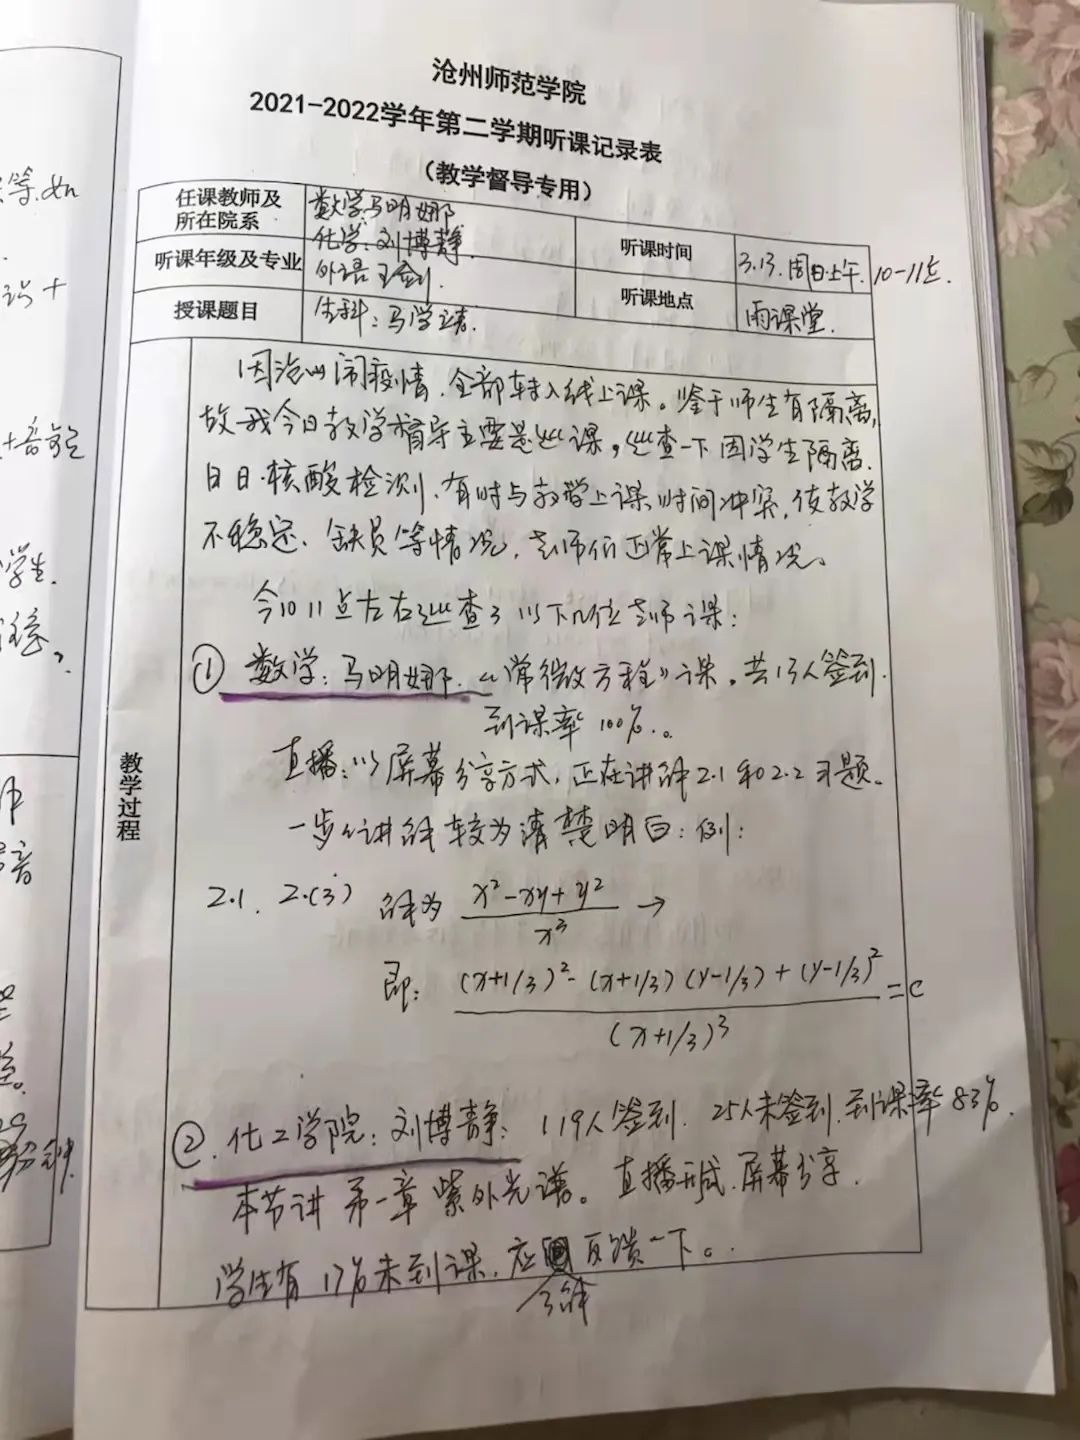 沧州师范学院
2021-2022学年第二学期听课记录表
（教学督导专用）
任课教师及所在院系
数学马明娜
化学：刘博静.
听课时间
3.13.周日上午.10-11点.
听课年级及专业
外语 王剑.
听课地点
雨课堂.
授课题目
生科：马学志.
教学过程
因沧州闹疫情，全部转入线上课。鉴于师生有隔离，
故我今日教学督导主要是巡课，巡查一下因学生隔离、
日日核酸检测、有时与教学上课时间冲突，使教学
不稳定、缺员等情况，老师们正常上课情况。
今10 11点左右巡查了以下几位老师课：
① 数学：马明娜.《常微方程》课。共13人签到.
到课率100%.。
直播：以屏幕分享方式，正在讲解2.1和2.2习题。
一步々讲解较为清楚明白：例：
2.1. 2.(3) 解为 (x²-xy+y²)/x³ →
即：((x+1/3)²-(x+1/3)(y-1/3)+(y-1/3)²)/(x+1/3)³=c
②.化工学院：刘博静：119人签到.25人未签到.到课率83%.
本节讲第一章紫外光谱。直播形式.屏幕分享.
学生有17%未到课，应了解反馈一下。
等.如
识+
学生.